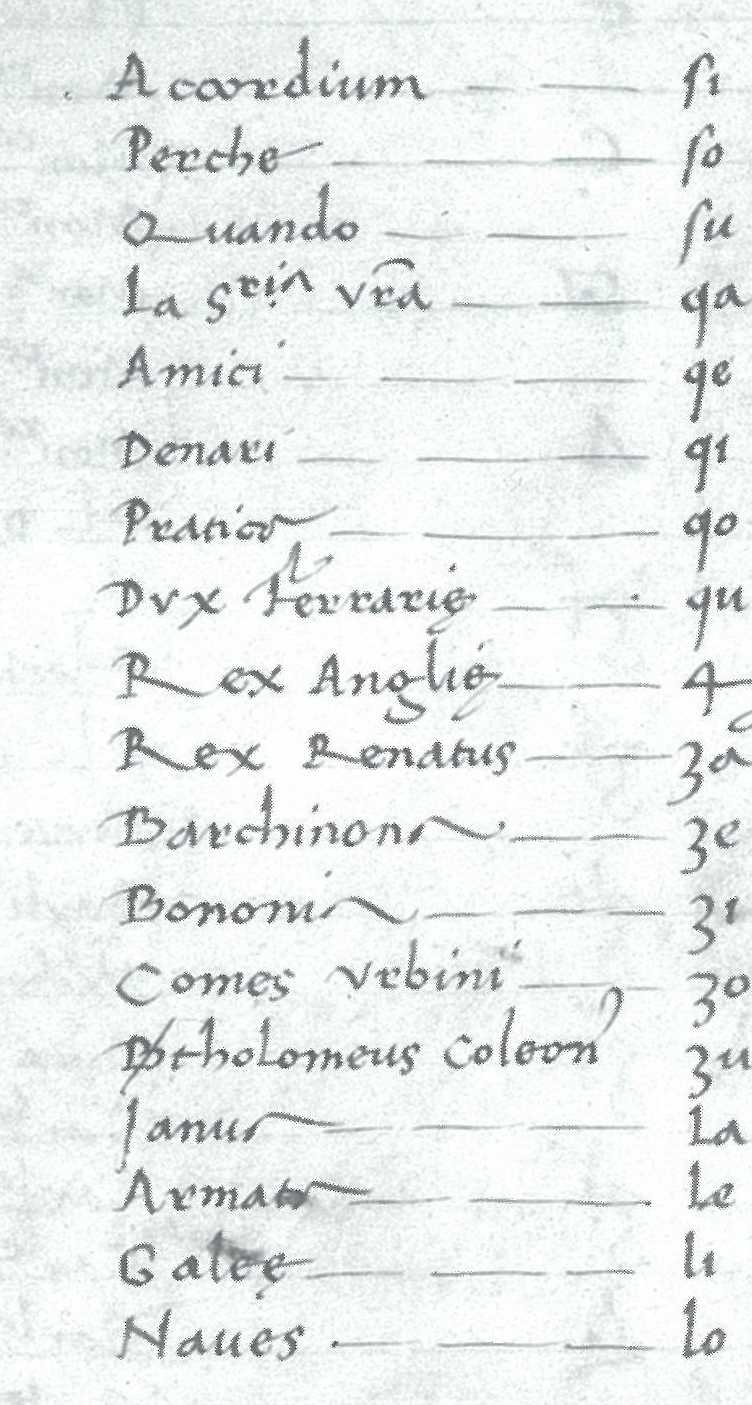 Accordium — — ſi
Perche — — — ſo
Quando — — ſu
La Sria vra — — qa
Amici — — — qe
Denari — — — qi
Pratica — — — qo
Dvx Ferrarię — — qu
Rex Anglię — — 4
Rex Renatus — — 3a
Barchinona — — 3e
Bononia — — — 3i
Comes Vrbini — — 3o
Bartholomeus Coleon 3u
Janua — — — La
Armata — — le
Galeę — — — li
Naues — — — lo